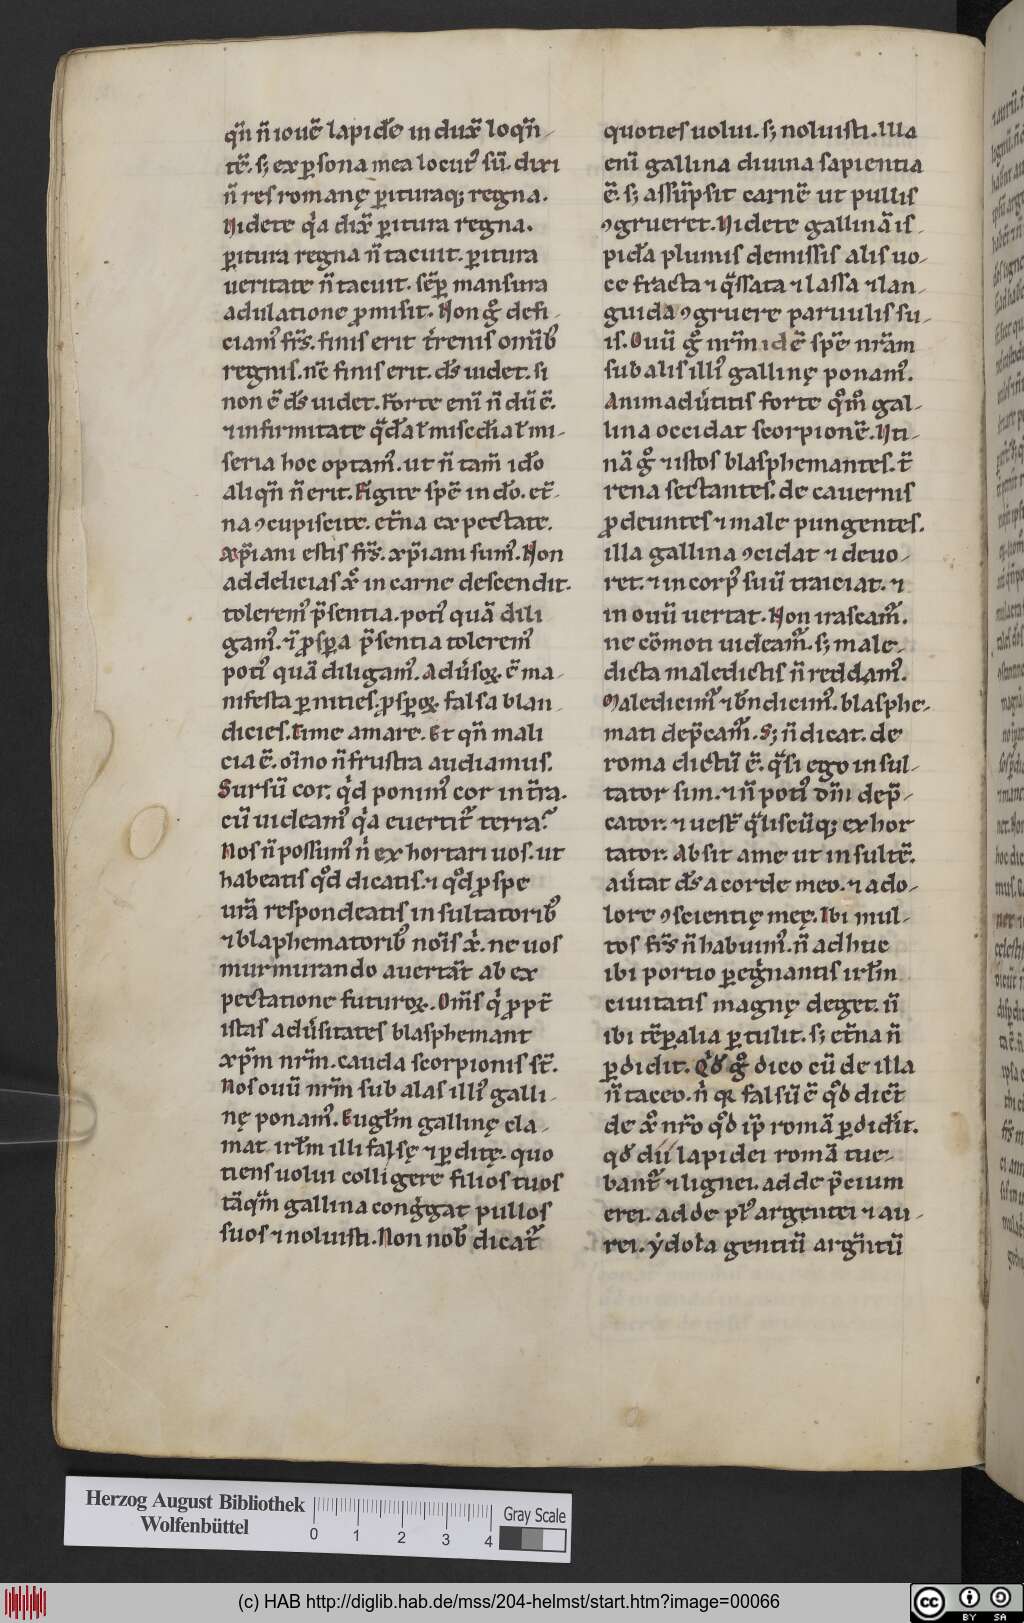 qn̄ n̄ ioue᷉ lapide᷉ in dux᷉ loqn̄-
te᷉. s; ex ꝑsona mea locutꝰ su᷉. dixi
n̄ res romanę ꝑituraq; regna.
Videte qͥa dix᷉ ꝑitura regna.
ꝑitura regna n̄ tacuit. ꝑitura
ueritate n̄ tacuit. se᷉ꝑ mansura
adulatione ꝓmisit. Non gͦ defi-
ciamꝰ frs̄. finis erit tͬrenis omib᷉ꝫ
regnis. nc᷉ finis erit. ds̄ uidet. si
non e᷉ ds̄ uidet. Forte eni᷉ n̄ du᷉ e᷉.
⁊ infirmitate q᷉dal misc̄dial mi-
seria hoc optamꝰ. ut n̄ tam̄ ido
aliqn̄ n̄ erit. Figite spe᷉ in do. et᷉-
na ꝯcupiscite. et᷉na expectate.
xp̄iani estis frs̄. xp̄iani sumꝰ. Non
ad delicias xͦ᷉ in carne descendit.
toleremꝰ p̄sentia. potiꝰ qua᷉ dili
gamꝰ. ⁊ i᷉ ꝓsꝑa p̄sentia toleremꝰ
potiꝰ qua᷉ diligamꝰ. Adu᷉soꝝ. e᷉ ma-
nifesta ꝑnities. ꝓsꝑoꝝ. falsa blan
dicies. Time amare. Et qn̄ mali
cia e᷉. oi᷉no n̄ frustra audiamus.
Sursu᷉ cor. qͥd ponimꝰ cor in t᷉ra.
cu᷉ uideamꝰ qͥa euertit᷉ terra?
Nos n̄ possumꝰ nͥ exhortari uos. ut
habeatis qͦd dicatis. ⁊ qͦd ꝓ spe
ura᷉ respondeatis insultatorib᷉ꝫ
⁊ blaphematorib᷉ꝫ noi᷉s xͥ. ne uos
murmurando auerta᷉t ab ex
pectatione futuroꝝ. Om̄s qͥ ꝓpt᷉
istas adu᷉sitates blasphemant
xp̄m nrm̄. cauda scorpionis st᷉.
Nos ouu᷉ nrm̄ sub alas illiꝰ galli-
nę ponamꝰ. Euglm̄ gallinę cla-
mat irlm̄ illi falsę ⁊ ꝑditę. quo
tiens uolui colligere filios tuos
ta᷉qm̄ gallina congͥgat pullos
suos ⁊ noluisti. Non nob᷉ dicat᷉
quoties uolui. s; noluisti. Illa
eni᷉ gallina diuina sapientia
e᷉. s; assu᷉psit carne᷉ ut pullis
ꝯgrueret. Videte gallina᷉ is-
pida plumis demissis alis uo-
ce fracta ⁊ q᷉ssata ⁊ lassa ⁊ lan-
guida ꝯgruere paruulis su-
is. Ouu᷉ gͦ nrm̄ id e᷉ spe᷉ nra᷉m
sub alis illiꝰ gallinę ponamꝰ.
Animadu᷉titis forte qͦmͦ gal-
lina occidat scorpione᷉. Uti-
na᷉ gͦ ⁊ istos blasphemantes. t᷉
rena sectantes. de cauernis
ꝓdeuntes ⁊ male pungentes.
illa gallina ꝯcidat ⁊ deuo-
ret. ⁊ in corpꝰ suu᷉ traiciat. ⁊
in ouu᷉ uertat. Non irascam᷉.
ne co᷉moti uideam᷉. s; male-
dicta maledictis n̄ reddamꝰ.
Maledicim᷉ ⁊ bn̄dicimꝰ. blasphe-
mati dep᷉cam᷉. S; n̄ dicat. de
roma dictu᷉ e᷉. q᷉si ego insul-
tator sim. ⁊ n̄ potiꝰ dm̄ dep᷉-
cator. ⁊ uest᷉ q᷉liscu᷉q; exhor
tator. Absit a me ut insulte᷉.
au᷉tat ds̄ a corde meo. ⁊ a do-
lore ꝯscientię meę. Ibi mul-
tos frs̄ n̄ habuimꝰ. n̄ adhuc
ibi portio ꝑegͥnantis irlm̄
ciuitatis magnę deget. n̄
ibi te᷉ꝑalia ꝑtulit. s; et᷉na n̄
ꝑdidit. Qͥd gͦ dico cu᷉ de illa
n̄ taceo. nͥ qꝛ falsu᷉ e᷉ qͦd dict᷉
de xͦ nro᷉ qͦd ip̄ roma᷉ ꝑdidͥit.
qd᷉ dii lapidei roma᷉ tue-
bant᷉ ⁊ lignei. adde p᷉cium
erei. adde plꝰ argentei ⁊ au-
rei. ydola gentiu᷉ argn᷉tu᷉
Herzog August Bibliothek
Wolfenbüttel
0 1 2 3 4
Gray Scale
(c) HAB http://diglib.hab.de/mss/204-helmst/start.htm?image=00066
cc BY SA